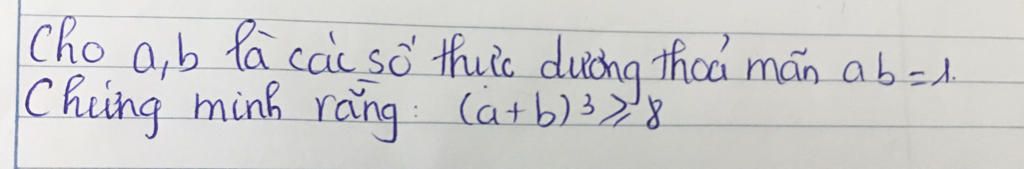 Cho a, b là các số thực dương thoả mãn ab = 1.
Chứng minh rằng: (a+b)³ ⩾ 8